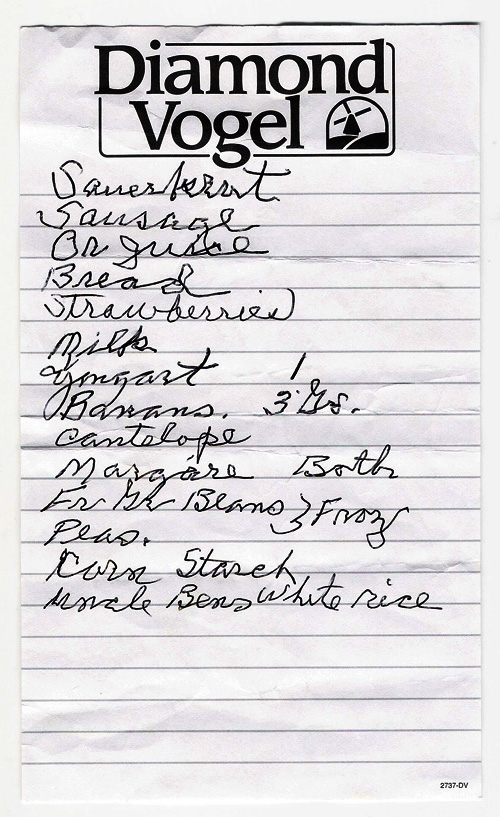 Diamond
Vogel
Sauerkraut
Sausage
Or Juice
Bread
Strawberries
Milk
Yougart 1
Banans. 3
Cantelope
Margare Both
Fr Gr Beans } Froz
Peas.
Corn Starch
Uncle Bens White rice
2737-DV